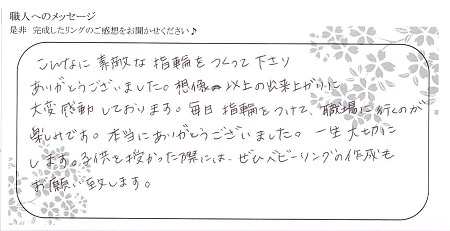 職人へのメッセージ
是非 完成したリングのご感想をお聞かせください♪
こんなに素敵な指輪をつくって下さり
ありがとうございました。想像以上の出来上がりに
大変感動しております。毎日指輪をつけて、職場に行くのが
楽しみです。本当にありがとうございました。一生大切に
します。子供を授かった際には、ぜひベビーリングの作成も
お願い致します。